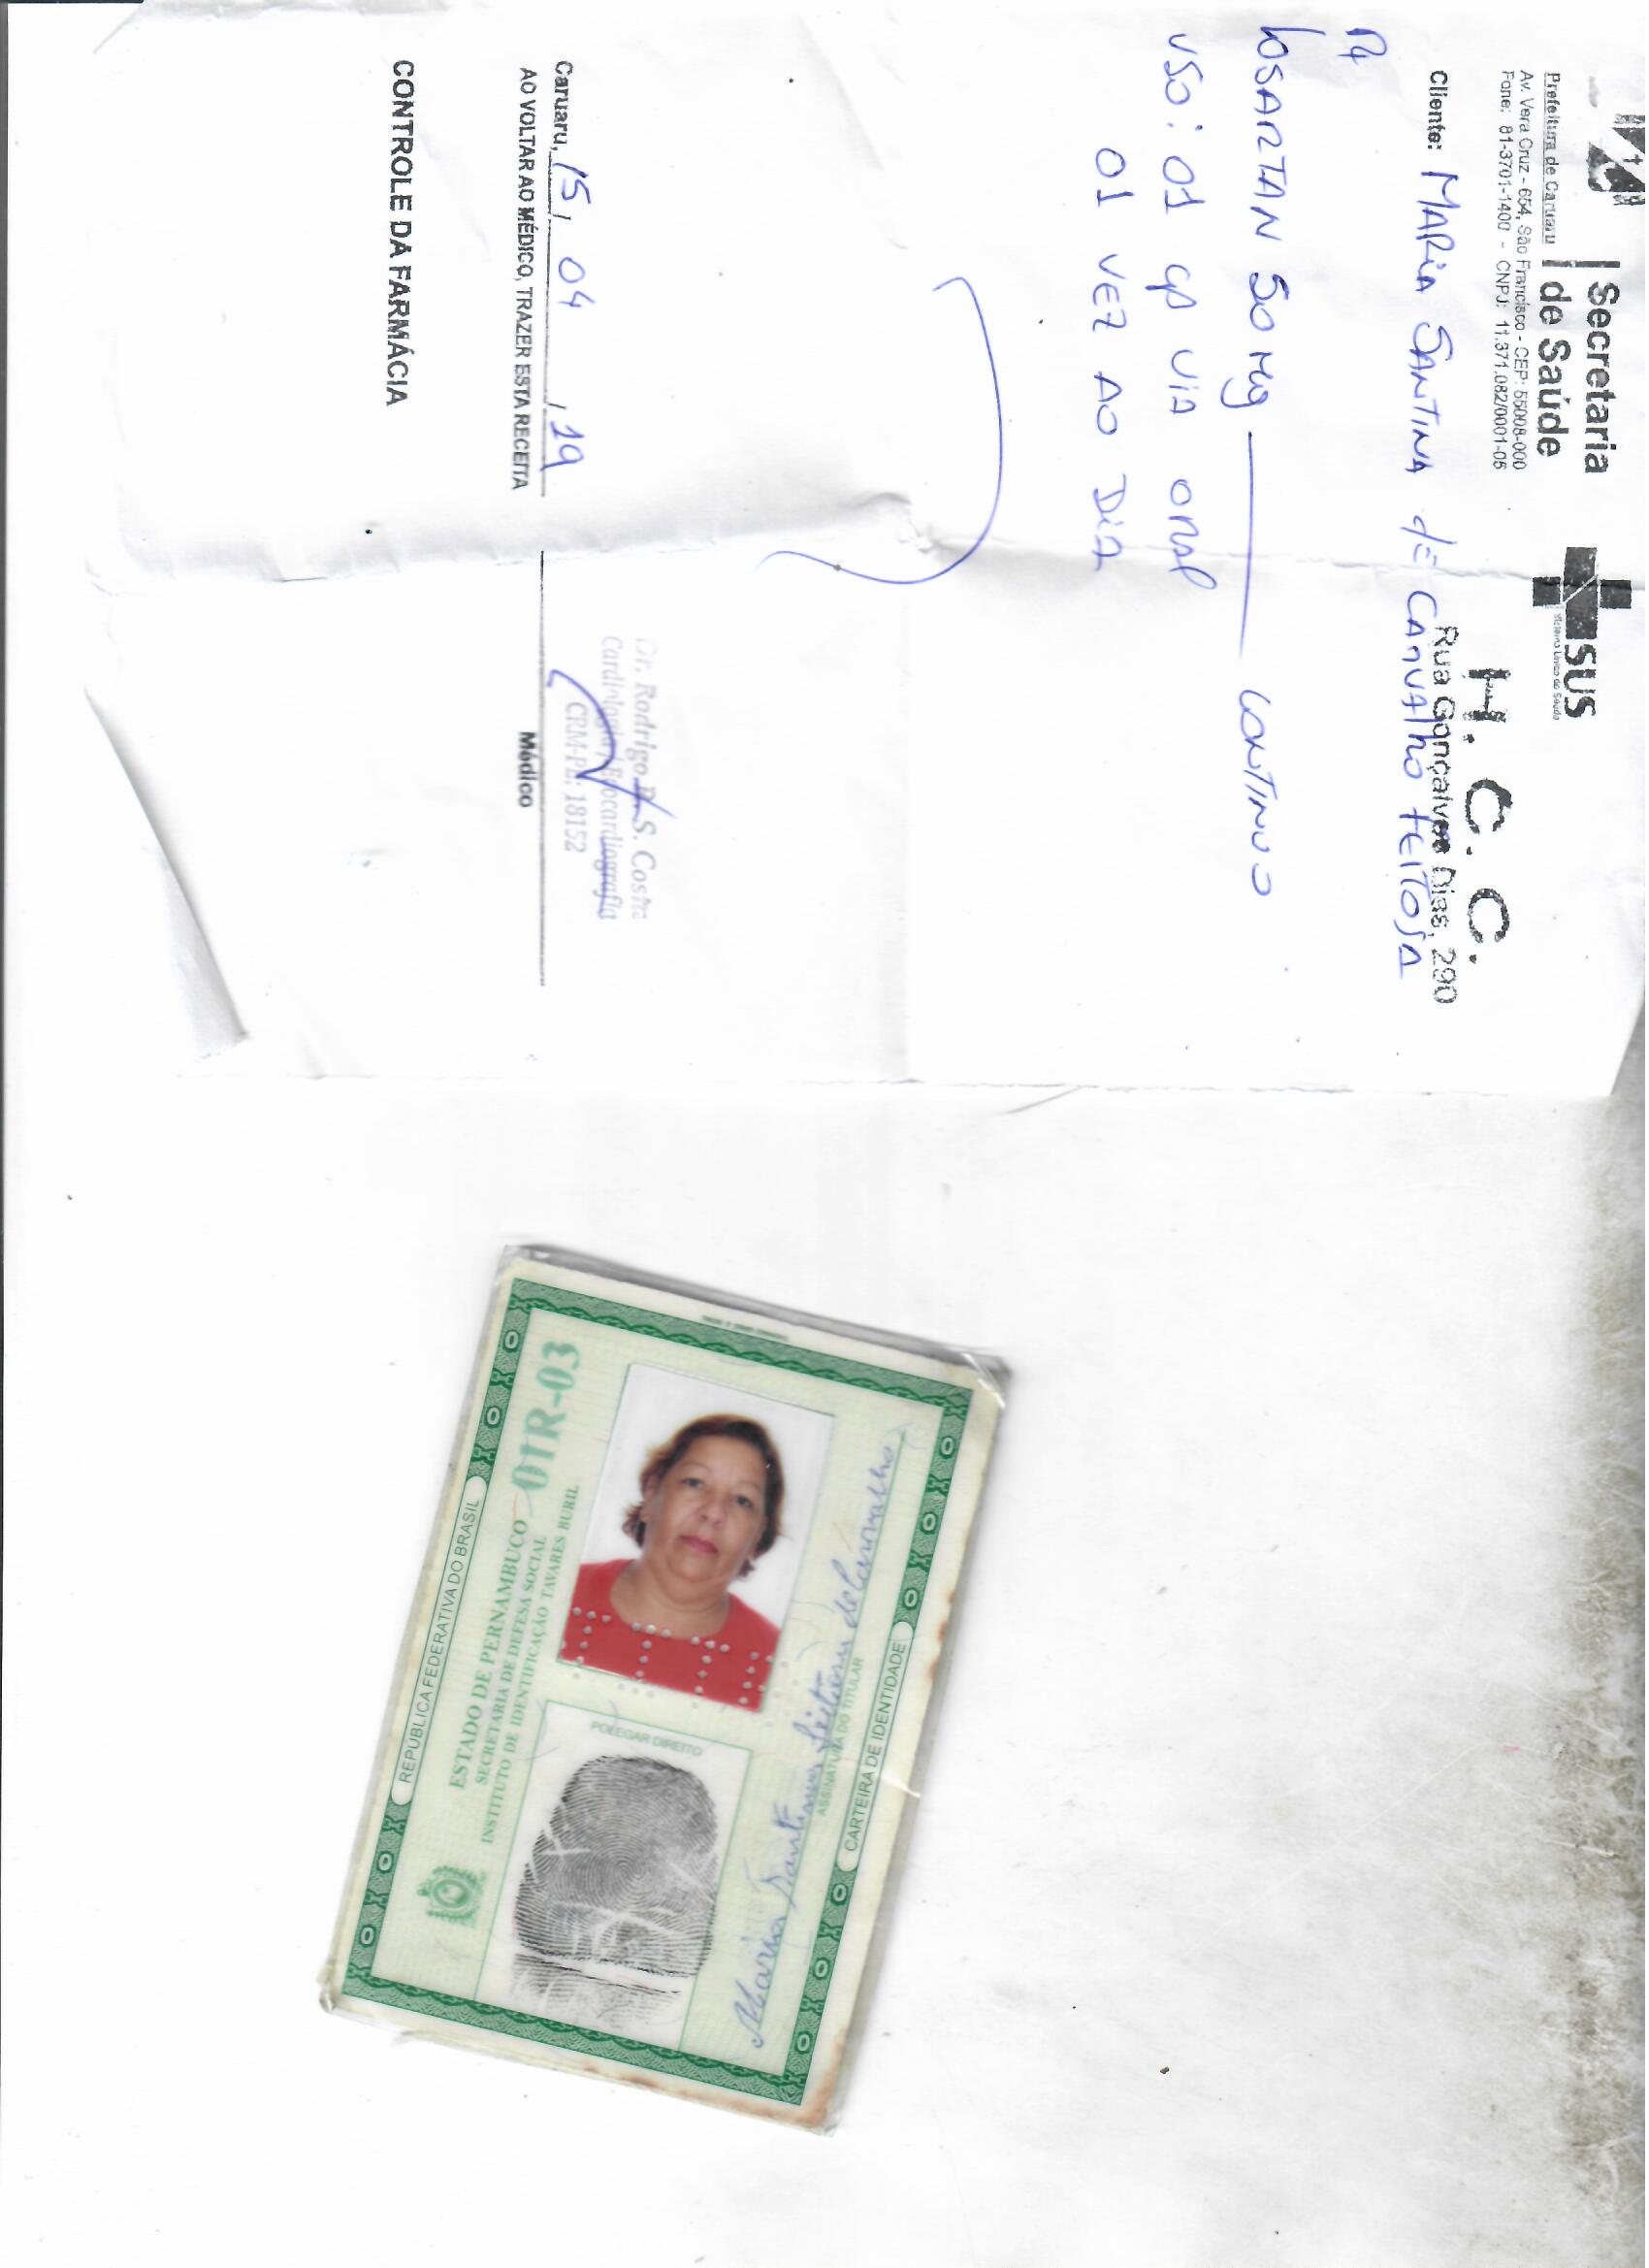 Secretaria
de Saúde
Prefeitura de Caruaru
SUS
H. C. C.
Rua Gonçalves Dias, 290
Av. Vera Cruz - 654, São Francisco - CEP: 55008-000
Fone: 81-3701-1400 - CNPJ: 11.371.082/0001-05
Cliente: MARIA SANTINA DE CARVALHO FEITOSA
LOSARTAN 50 mg CONTINUO
USO: 01 cp VIA ORAL
01 VEZ AO DIA
Dr. Rodrigo P. S. Costa
Cardiologia / Ecocardiografia
CRM-PE: 18152
Caruaru, 15 / 04 / 19
Médico
AO VOLTAR AO MÉDICO, TRAZER ESTA RECEITA
CONTROLE DA FARMÁCIA
REPÚBLICA FEDERATIVA DO BRASIL
ESTADO DE PERNAMBUCO 01R-03
SECRETARIA DE DEFESA SOCIAL
INSTITUTO DE IDENTIFICAÇÃO TAVARES BURIL
POLEGAR DIREITO
Maria Santina Feitosa de Carvalho
ASSINATURA DO TITULAR
CARTEIRA DE IDENTIDADE